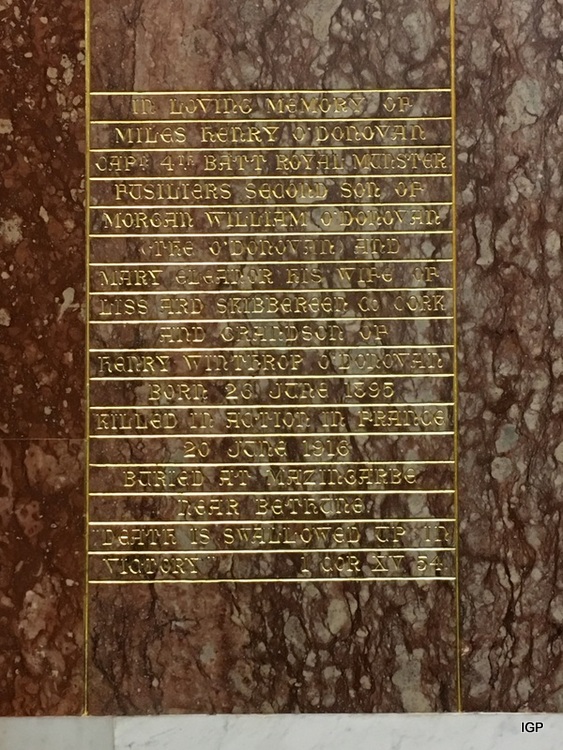 IN LOVING MEMORY OF
MILES HENRY O'DONOVAN
CAPT 4TH BATT ROYAL MUNSTER
FUSILIERS SECOND SON OF
MORGAN WILLIAM O'DONOVAN
(THE O'DONOVAN) AND
MARY ELEANOR HIS WIFE OF
LISS ARD SKIBBEREEN CO CORK
AND GRANDSON OF
HENRY WINTHROP O'DONOVAN
BORN 26 JUNE 1895
KILLED IN ACTION IN FRANCE
20 JUNE 1916
BURIED AT MAZINGARBE
NEAR BETHUNE.
"DEATH IS SWALLOWED UP IN
VICTORY" 1 COR XV 54
IGP